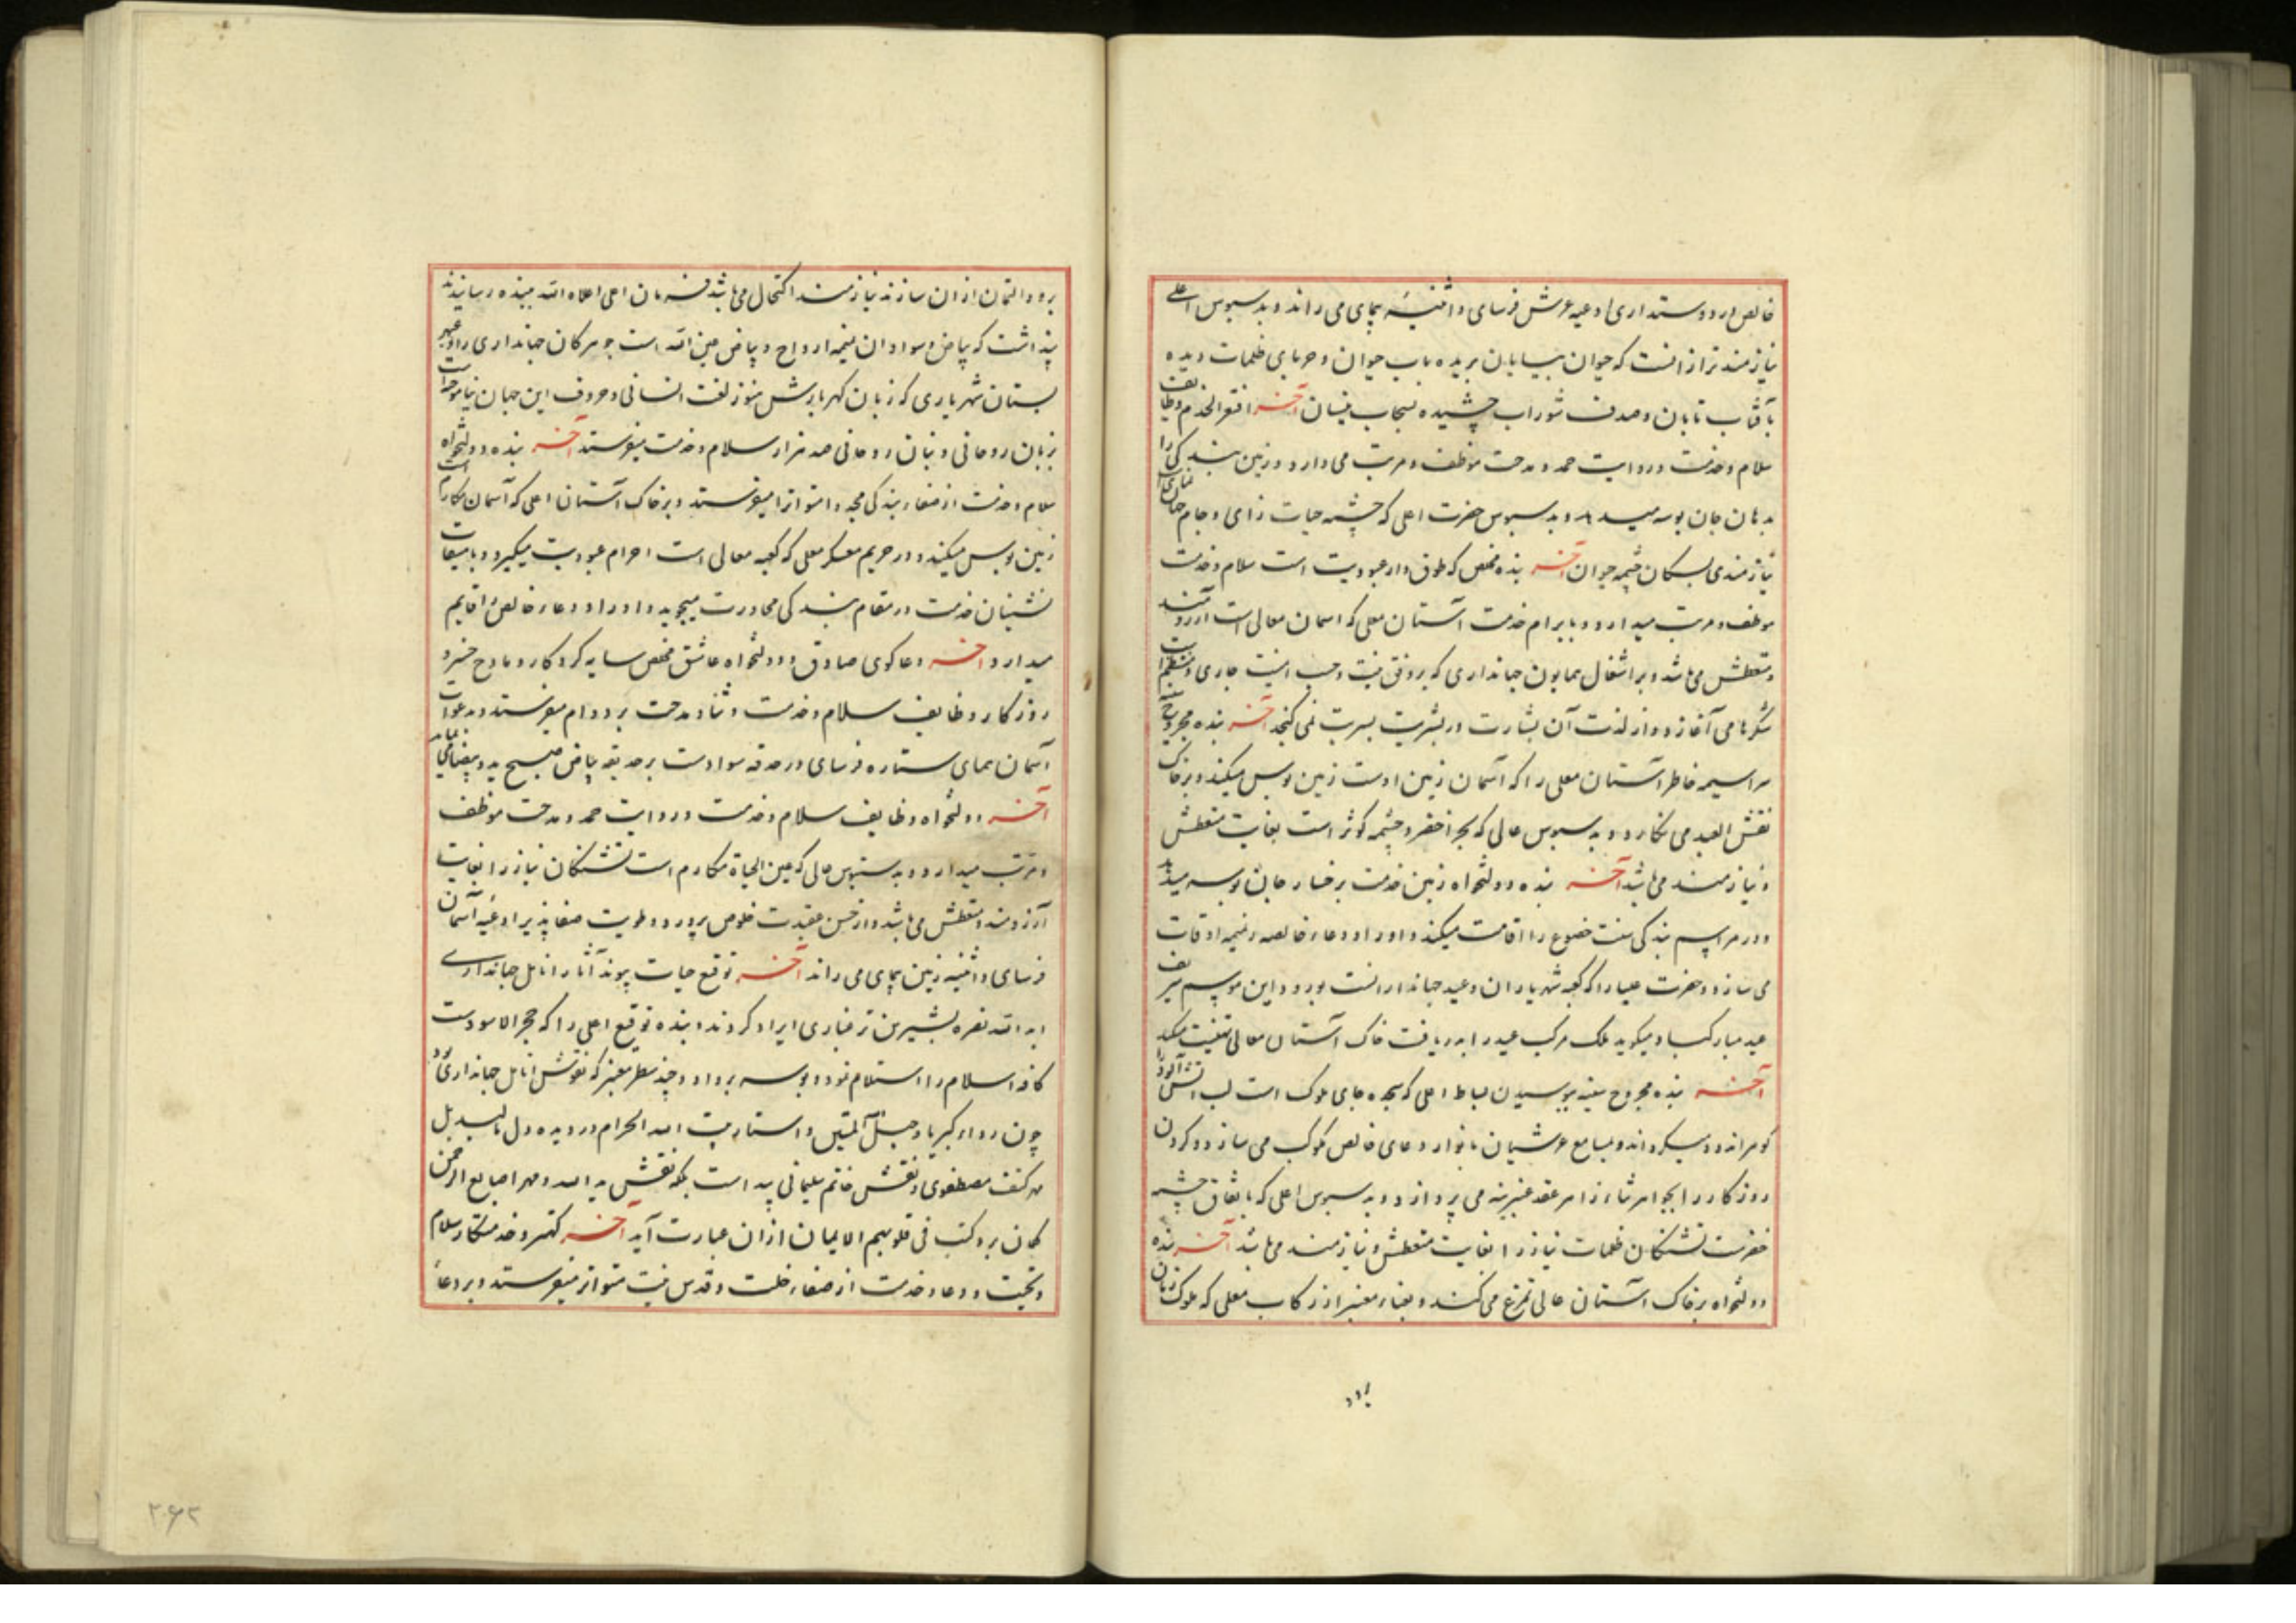 خالص ارد و ستداری ادعیه عرش فرسای و اثنیه پیمای می راند و بدسبوس اعلی
نیازمندتر از انست که حیوان بیابان بریده بآب حیوان و حربای ظلمات دیده
بآفتاب تابان و صدف شوراب چشیده بسحاب نیسان آخر افقر الخدم وظایف
سلام و خدمت و روایت حمد و مدحت موظف و مرتب می دارد و زمین بندگی را
بدهان جان بوسه میدهد و بدسبوس حضرت اعلی که چشمه حیات زای و جام
نیازمندی بسکان چشمه حیوان آخر بنده مخلص که طوق دار عبودیت است سلام و خدمت
موظف و مرتب میدارد و بابرام خدمت آستان معلی که اسمان معالی است آرزومند
و متعطش می باشد و بر اشغال همایون جهانداری که بر وفق نیت و حسب امنیت جاری و منتظم است
شکرها می آغازد و از لذت آن بشارت در بشریت بسریت نمی گنجد آخر بنده مجروح
سراسیمه خاطر آستان معلی را که آسمان زمین اوست زمین بوس میکند و بر خاک
نقش العبد می نگارد و بدسبوس عالی که بحر اخضر و چشمه کوثر است بغایت متعطش
و نیازمند می باشد آخر بنده دولتخواه زمین خدمت برخسار جان بوسه میدهد
و در مراسم بندگی سنت خضوع را اقامت میکند و اوراد دعاء خالصه رنیمه اوقات
می سازد و حضرت علیا را که کعبه شهریاران و عید جهاندارانست بورود این موسم شریف
عید مبارکباد میگوید ملک مرکب عید را بدریافت خاک آستان معالی تهنیت میکند
آخر بنده مجروح سینه ببوسیدن بساط اعلی که سجده جای ملوک است لب آتش آلود را
گوهر اندود میگرداند و بمسامع عرشیان بانوار دعای خالص کوکب می سازد و گردن
روزگار را بجواهر ثناء زاهر عقد عنبرینه می پردازد و بدسبوس اعلی که باتفاق چشمه
خضرست تشنگان ظلمات نیاز را بغایت متعطش و نیازمند می باشد آخر بنده
دولتخواه بر خاک آستان عالی تمرغ می کند و بغبار معنبر از رکاب معلی که ملوک زمان
برود
برود التمان ازان سازند نیازمند اکتحال می باشد فرمان اعلی اعلاه الله ببنده رسانیدند
پنداشت که بیاض و سواد آن نیمه ارواح و بیاض عین الله است جوهر کان جهانداری را و عبهر
بستان شهریاری که زبان گهربارش هنوز لغت انسانی و حروف این جهان نیاموخته است
بزبان روحانی و بنان روحانی صد هزار سلام و خدمت میفرستد آخر بنده دولتخواه
سلام و خدمت از صفاء بندگی مجد و امتواترا میفرستد و بر خاک آستان اعلی که آسمان مکارم است
زمین بوس میکند و در حریم معسکر معلی که کعبه معالی است احرام عبودیت میگیرد و با میقات
نشینان خدمت در مقام بندگی مجاورت میجوید و اوراد دعاء خالص اقایم
میدارد آخر دعاگوی صادق و دولتخواه عاشق مخلص سایه کردگار و مادح خسرو
روزگار وظایف سلام و خدمت و ثنا و مدحت بر دوام میفرستد و دعوات
آسمان سمای ستاره فرسای در حدقه سواد ست بر حدیقه بیاض صبح پدید
آخر دولتخواه وظایف سلام و خدمت و روایت حمد و مدحت موظف
و مرتب میدارد و بدستبوس عالی که عین الحیاة مکارم است تشنگان نیاز را بغایت
آرزومند و متعطش می باشد و از حسن عقیدت خلوص پرور و طویت صفا پذیر ادعیه آسمان
فرسای و اثنیه زمین پیمای می راند آخر توقع حیات پیوند آثار انامل جهانداری
ابد الله نصره بشیرین تر عباری ایراد کردند و بنده توقیع اعلی را که حجر الاسود ست
کافه اسلام را استلام نمود و بوسه برداد و چند سطر معنبر که نقوش انامل جهانداری بود
چون رداء کبریا و حبل المتین و استار بیت الله الحرام در دیده دل
مهر کتف مصطفوی و نقش خاتم سلیمانی پیداست بلکه نقش ید الله و مهر اصابع الرحمن
گمان برد کتب فی قلوبهم الایمان ازان عبارت آید آخر کهتر و خدمتکار سلام
و تحیت و دعا و خدمت از صفاء خلت و قدس نیت متواتر میفرستد و بر دعا
۲۶۲